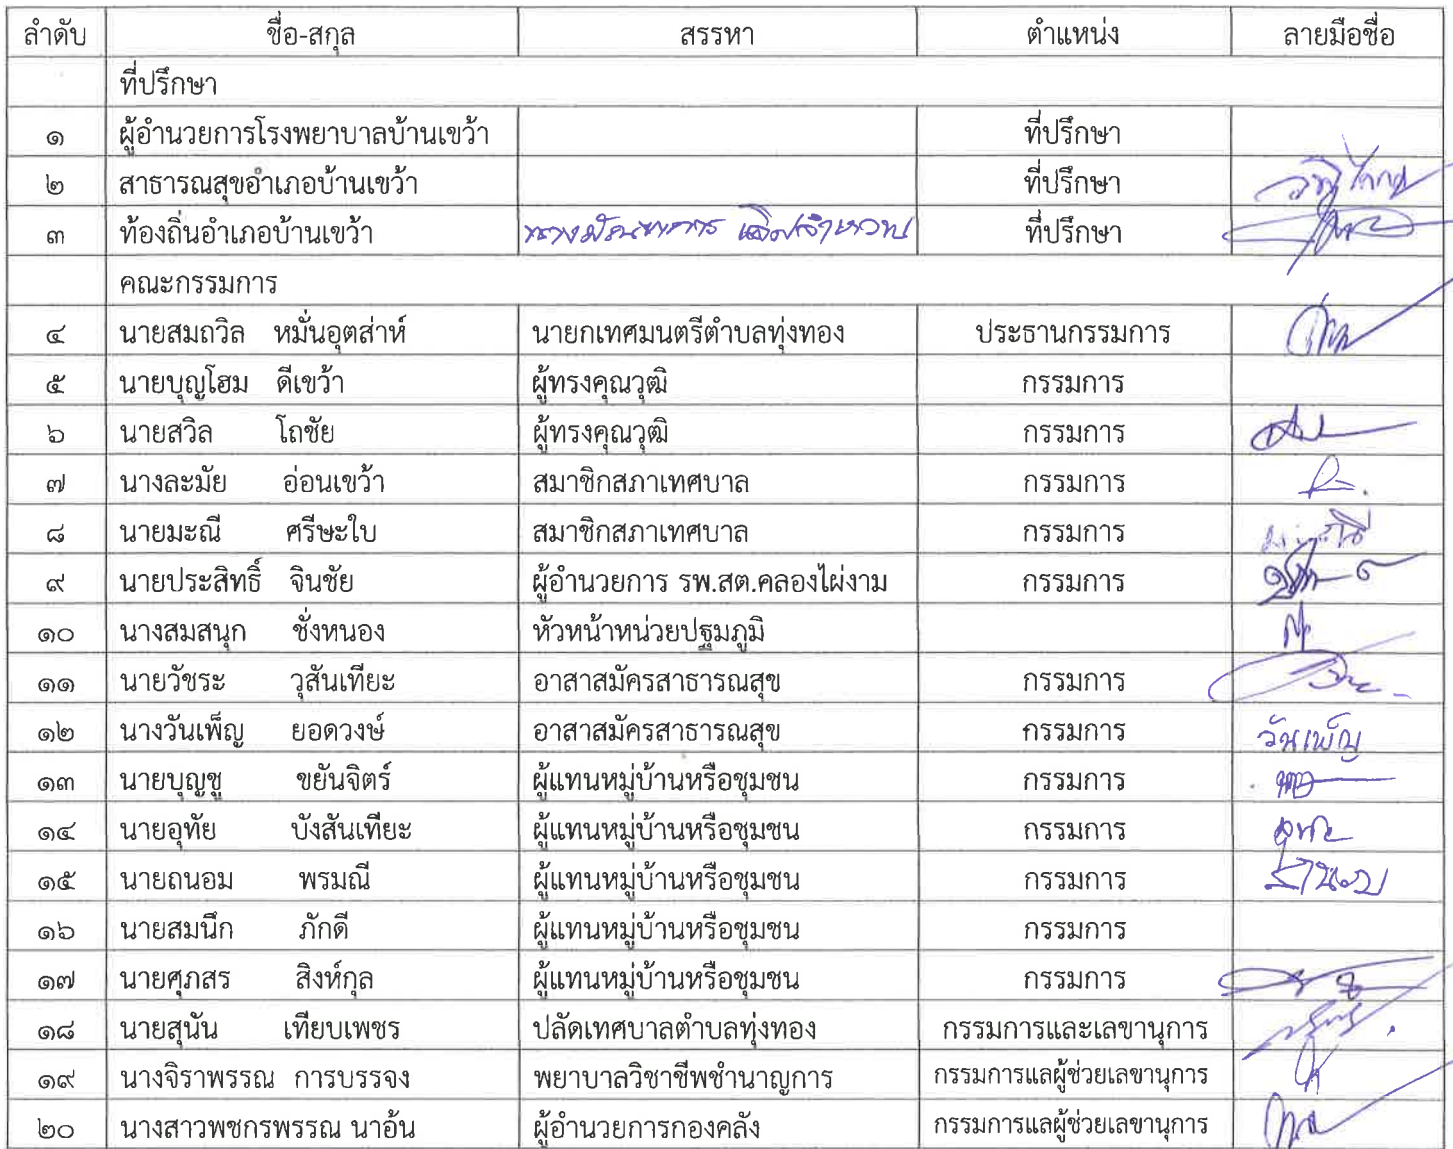 ลำดับ ชื่อ-สกุล สรรหา ตำแหน่ง ลายมือชื่อ
ที่ปรึกษา
๑ ผู้อำนวยการโรงพยาบาลบ้านเขว้า ที่ปรึกษา
๒ สาธารณสุขอำเภอบ้านเขว้า ที่ปรึกษา
๓ ท้องถิ่นอำเภอบ้านเขว้า ที่ปรึกษา
คณะกรรมการ
๔ นายสมถวิล หมั่นอุตส่าห์ นายกเทศมนตรีตำบลทุ่งทอง ประธานกรรมการ
๕ นายบุญโฮม ดีเขว้า ผู้ทรงคุณวุฒิ กรรมการ
๖ นายสวิล โถชัย ผู้ทรงคุณวุฒิ กรรมการ
๗ นางละมัย อ่อนเขว้า สมาชิกสภาเทศบาล กรรมการ
๘ นายมะณี ศรีษะใบ สมาชิกสภาเทศบาล กรรมการ
๙ นายประสิทธิ์ จินชัย ผู้อำนวยการ รพ.สต.คลองไผ่งาม กรรมการ
๑๐ นางสมสนุก ชั่งหนอง หัวหน้าหน่วยปฐมภูมิ
๑๑ นายวัชระ วุสันเทียะ อาสาสมัครสาธารณสุข กรรมการ
๑๒ นางวันเพ็ญ ยอดวงษ์ อาสาสมัครสาธารณสุข กรรมการ วันเพ็ญ
๑๓ นายบุญชู ขยันจิตร์ ผู้แทนหมู่บ้านหรือชุมชน กรรมการ
๑๔ นายอุทัย บังสันเทียะ ผู้แทนหมู่บ้านหรือชุมชน กรรมการ
๑๕ นายถนอม พรมณี ผู้แทนหมู่บ้านหรือชุมชน กรรมการ
๑๖ นายสมนึก ภักดี ผู้แทนหมู่บ้านหรือชุมชน กรรมการ
๑๗ นายศุภสร สิงห์กุล ผู้แทนหมู่บ้านหรือชุมชน กรรมการ
๑๘ นายสุนัน เทียบเพชร ปลัดเทศบาลตำบลทุ่งทอง กรรมการและเลขานุการ
๑๙ นางจิราพรรณ การบรรจง พยาบาลวิชาชีพชำนาญการ กรรมการแลผู้ช่วยเลขานุการ
๒๐ นางสาวพชกรพรรณ นาอ้น ผู้อำนวยการกองคลัง กรรมการแลผู้ช่วยเลขานุการ